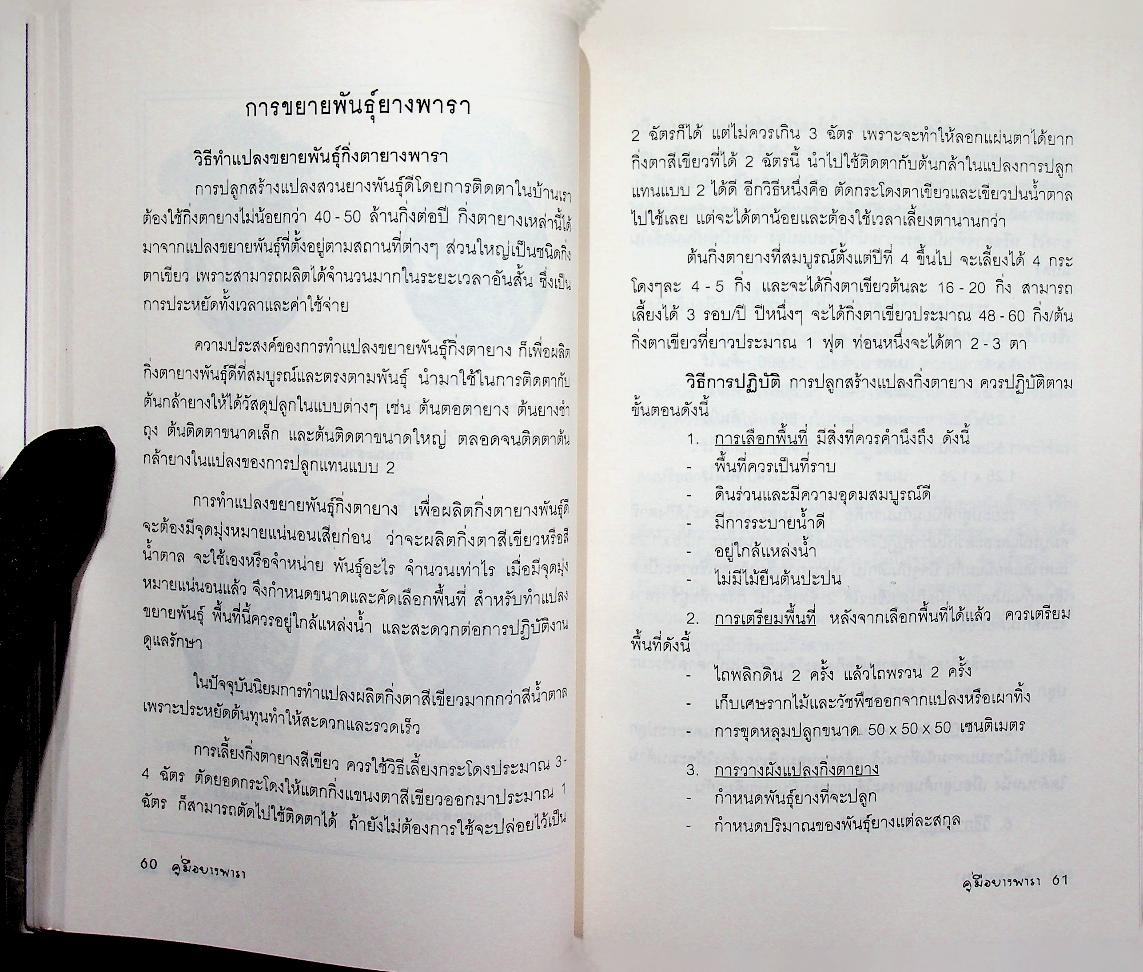 การขยายพันธุ์ยางพารา
วิธีทำแปลงขยายพันธุ์กิ่งตายางพารา
การปลูกสร้างแปลงสวนยางพันธุ์ดีโดยการติดตาในบ้านเรา
ต้องใช้กิ่งตายางไม่น้อยกว่า 40 - 50 ล้านกิ่งต่อปี กิ่งตายางเหล่านี้ได้
มาจากแปลงขยายพันธุ์ที่ตั้งอยู่ตามสถานที่ต่างๆ ส่วนใหญ่เป็นชนิดกิ่ง
ตาเขียว เพราะสามารถผลิตได้จำนวนมากในระยะเวลาอันสั้น ซึ่งเป็น
การประหยัดทั้งเวลาและค่าใช้จ่าย
ความประสงค์ของการทำแปลงขยายพันธุ์กิ่งตายาง ก็เพื่อผลิต
กิ่งตายางพันธุ์ดีที่สมบูรณ์และตรงตามพันธุ์ นำมาใช้ในการติดตากับ
ต้นกล้ายางให้ได้วัสดุปลูกในแบบต่างๆ เช่น ต้นตอตายาง ต้นยางชำ
ถุง ต้นติดตาขนาดเล็ก และต้นติดตาขนาดใหญ่ ตลอดจนติดตาต้น
กล้ายางในแปลงของการปลูกแทนแบบ 2
การทำแปลงขยายพันธุ์กิ่งตายาง เพื่อผลิตกิ่งตายางพันธุ์ดี
จะต้องมีจุดมุ่งหมายแน่นอนเสียก่อน ว่าจะผลิตกิ่งตาสีเขียวหรือสี
น้ำตาล จะใช้เองหรือจำหน่าย พันธุ์อะไร จำนวนเท่าไร เมื่อมีจุดมุ่ง
หมายแน่นอนแล้ว จึงกำหนดขนาดและคัดเลือกพื้นที่ สำหรับทำแปลง
ขยายพันธุ์ พื้นที่นี้ควรอยู่ใกล้แหล่งน้ำ และสะดวกต่อการปฏิบัติงาน
ดูแลรักษา
ในปัจจุบันนิยมการทำแปลงผลิตกิ่งตาสีเขียวมากกว่าสีน้ำตาล
เพราะประหยัดต้นทุนทำให้สะดวกและรวดเร็ว
การเลี้ยงกิ่งตายางสีเขียว ควรใช้วิธีเลี้ยงกระโดงประมาณ 3-
4 ฉัตร ตัดยอดกระโดงให้แตกกิ่งแขนงตาสีเขียวออกมาประมาณ 1
ฉัตร ก็สามารถตัดไปใช้ติดตาได้ ถ้ายังไม่ต้องการใช้จะปล่อยไว้เป็น
60 คู่มือยางพารา
2 ฉัตรก็ได้ แต่ไม่ควรเกิน 3 ฉัตร เพราะจะทำให้ลอกแผ่นตาได้ยาก
กิ่งตาสีเขียวที่ได้ 2 ฉัตรนี้ นำไปใช้ติดตากับต้นกล้าในแปลงการปลูก
แทนแบบ 2 ได้ดี อีกวิธีหนึ่งคือ ตัดกระโดงตาเขียวและเขียวปนน้ำตาล
ไปใช้เลย แต่จะได้ตาน้อยและต้องใช้เวลาเลี้ยงตานานกว่า
ต้นกิ่งตายางที่สมบูรณ์ตั้งแต่ปีที่ 4 ขึ้นไป จะเลี้ยงได้ 4 กระ
โดงๆละ 4 - 5 กิ่ง และจะได้กิ่งตาเขียวต้นละ 16 - 20 กิ่ง สามารถ
เลี้ยงได้ 3 รอบ/ปี ปีหนึ่งๆ จะได้กิ่งตาเขียวประมาณ 48 - 60 กิ่ง/ต้น
กิ่งตาเขียวที่ยาวประมาณ 1 ฟุต ท่อนหนึ่งจะได้ตา 2 - 3 ตา
วิธีการปฏิบัติ การปลูกสร้างแปลงกิ่งตายาง ควรปฏิบัติตาม
ขั้นตอนดังนี้
1. การเลือกพื้นที่ มีสิ่งที่ควรคำนึงถึง ดังนี้
- พื้นที่ควรเป็นที่ราบ
- ดินร่วนและมีความอุดมสมบูรณ์ดี
- มีการระบายน้ำดี
- อยู่ใกล้แหล่งน้ำ
- ไม่มีไม้ยืนต้นปะปน
2. การเตรียมพื้นที่ หลังจากเลือกพื้นที่ได้แล้ว ควรเตรียม
พื้นที่ดังนี้
- ไถพลิกดิน 2 ครั้ง แล้วไถพรวน 2 ครั้ง
- เก็บเศษรากไม้และวัชพืชออกจากแปลงหรือเผาทิ้ง
- การขุดหลุมปลูกขนาด 50 x 50 x 50 เซนติเมตร
3. การวางผังแปลงกิ่งตายาง
- กำหนดพันธุ์ยางที่จะปลูก
- กำหนดปริมาณของพันธุ์ยางแต่ละสกุล
คู่มือยางพารา 61